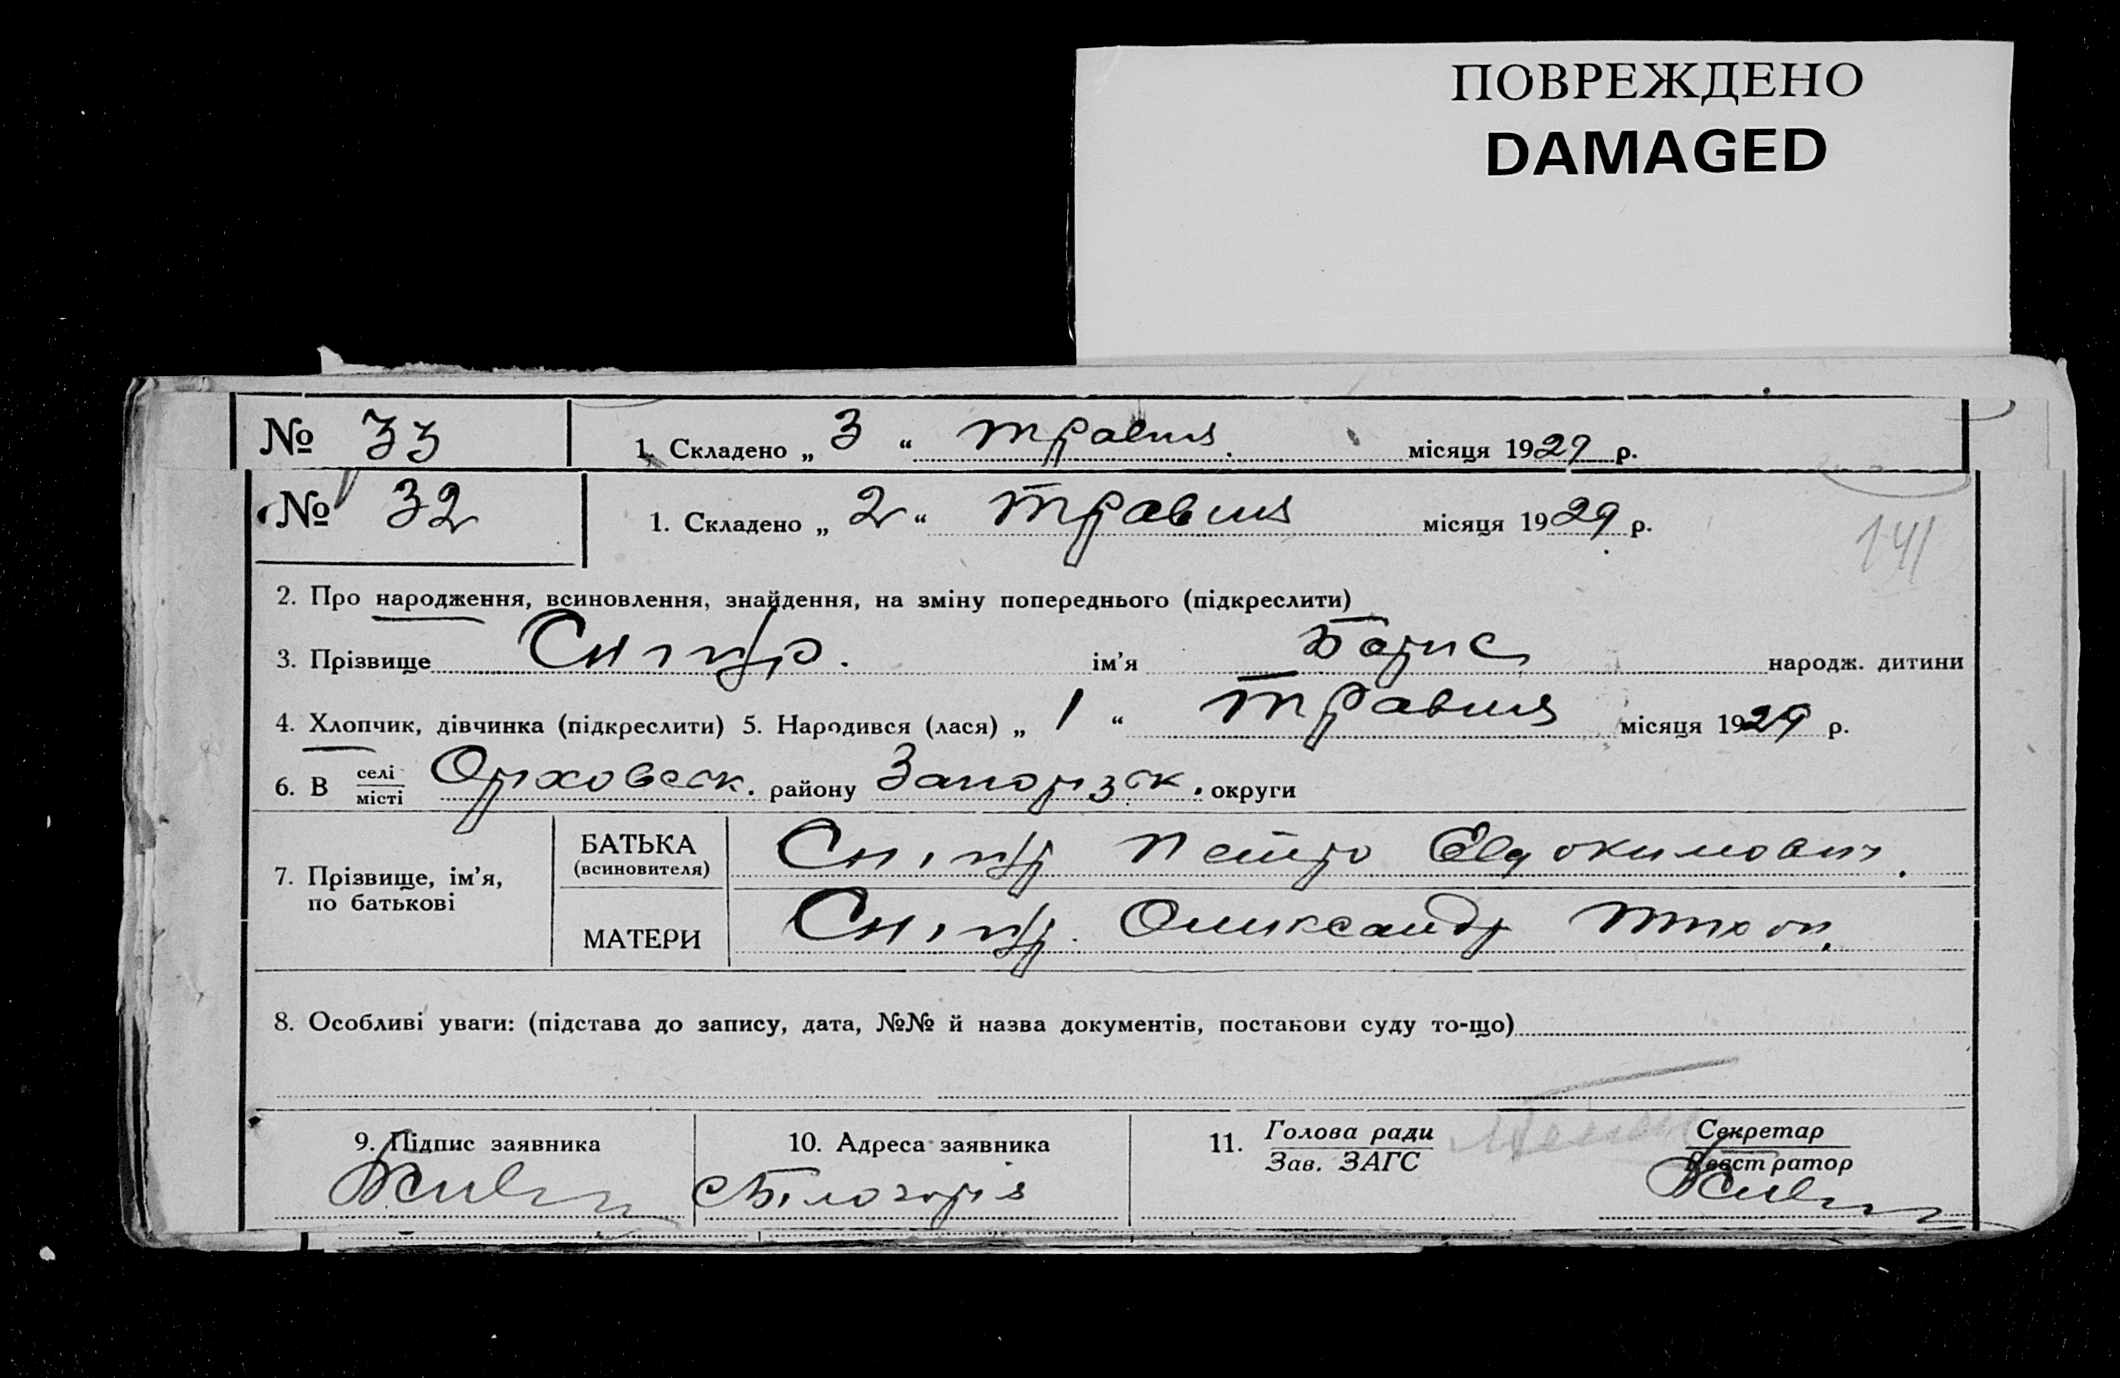 ПОВРЕЖДЕНО
DAMAGED
№ 33 1. Складено „ 3 “ травня. місяця 1929 р.
№ 32 1. Складено „ 2 “ травня місяця 1929 р.
141
2. Про народження, всиновлення, знайдення, на зміну попереднього (підкреслити)
3. Прізвище Снігир. ім’я Борис народж. дитини
4. Хлопчик, дівчинка (підкреслити) 5. Народився (лася) „ 1 “ травня місяця 1929 р.
6. В селі місті Оріховськ. району Запорізьк. округи
7. Прізвище, ім’я, по батькові
БАТЬКА (всиновителя) Снігир Петро Евдокимович.
МАТЕРИ Снігир. Олександр Тихон.
8. Особливі уваги: (підстава до запису, дата, №№ й назва документів, постанови суду то-що)
9. Підпис заявника 10. Адреса заявника 11. Голова ради Зав. ЗАГС Секретар Реєстратор
Білогорія